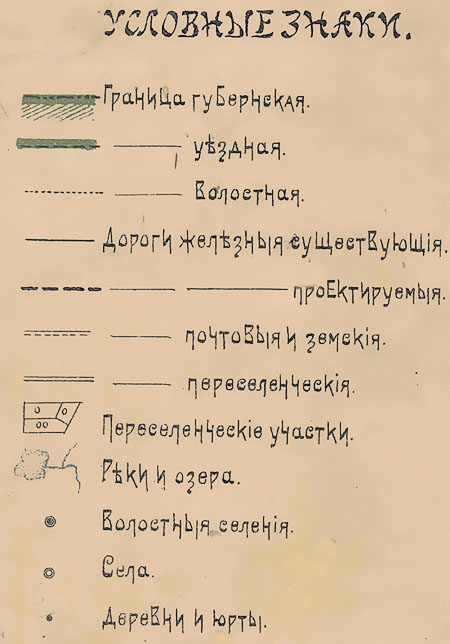 УСЛОВНЫЕ ЗНАКИ.
Граница губернская.
уѣздная.
Волостная.
Дороги желѣзныя существующія.
проектируемыя.
почтовыя и земскія.
переселенческія.
Переселенческіе участки.
Рѣки и озера.
Волостныя селенія.
Села.
Деревни и юрты.